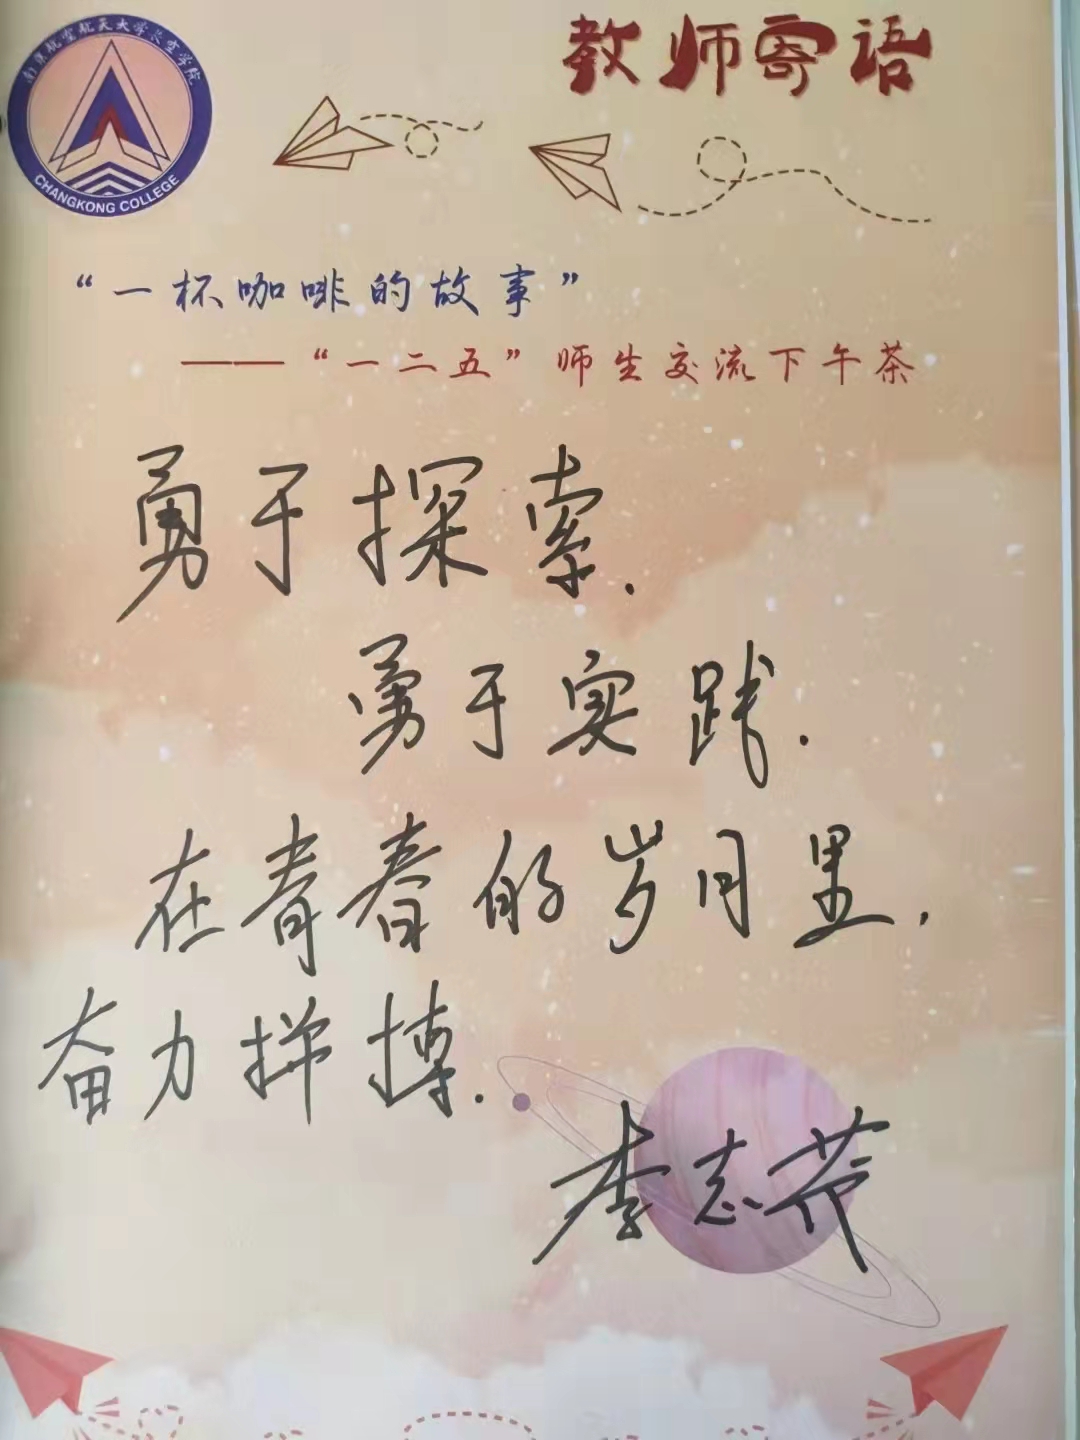 南京航空航天大学长空学院
CHANGKONG COLLEGE
教师寄语
“一杯咖啡的故事”
——“一二五”师生交流下午茶
勇于探索.
勇于实践.
在青春的岁月里,
奋力拼搏.
李志